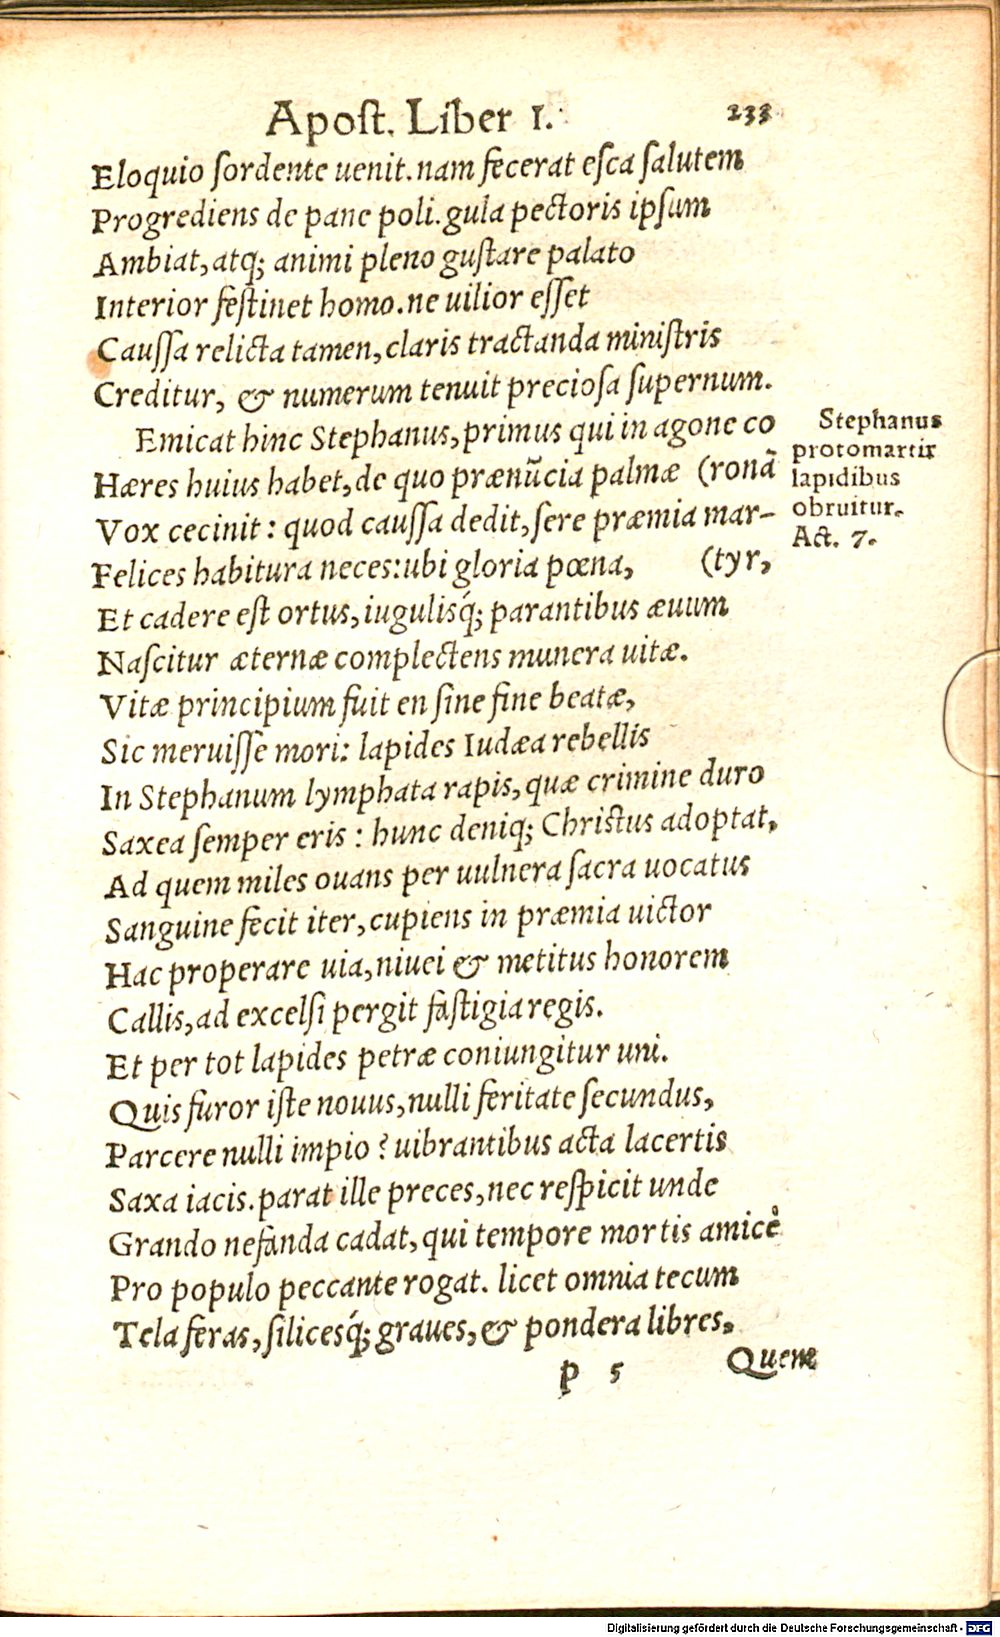 Apost. Liber I. 233
Eloquio sordente uenit. nam fecerat esca salutem
Progrediens de pane poli. gula pectoris ipsum
Ambiat, atq; animi pleno gustare palato
Interior festinet homo. ne uilior esset
Caussa relicta tamen, claris tractanda ministris
Creditur, & numerum tenuit preciosa supernum.
Emicat hinc Stephanus, primus qui in agone co
Hæres huius habet, de quo prænũcia palmæ (ronã
Vox cecinit: quod caussa dedit, fere præmia mar-
Felices habitura neces: ubi gloria pœna, (tyr,
Et cadere est ortus, iugulisq́; parantibus æuum
Nascitur æternæ complectens munera uitæ.
Vitæ principium fuit en sine fine beatæ,
Sic meruisse mori: lapides Iudæa rebellis
In Stephanum lymphata rapis, quæ crimine duro
Saxea semper eris: hunc deniq; Christus adoptat,
Ad quem miles ouans per uulnera sacra uocatus
Sanguine fecit iter, cupiens in præmia uictor
Hac properare uia, niuei & metitus honorem
Callis, ad excelsi pergit fastigia regis.
Et per tot lapides petræ coniungitur uni.
Quis furor iste nouus, nulli feritate secundus,
Parcere nulli impio? uibrantibus acta lacertis
Saxa iacis. parat ille preces, nec respicit unde
Grando nefanda cadat, qui tempore mortis amicè
Pro populo peccante rogat. licet omnia tecum
Tela feras, silicesq́; graues, & pondera libres,
P 5 Quem
Stephanus
protomartir
lapidibus
obruitur.
Act. 7.
Digitalisierung gefördert durch die Deutsche Forschungsgemeinschaft - DFG